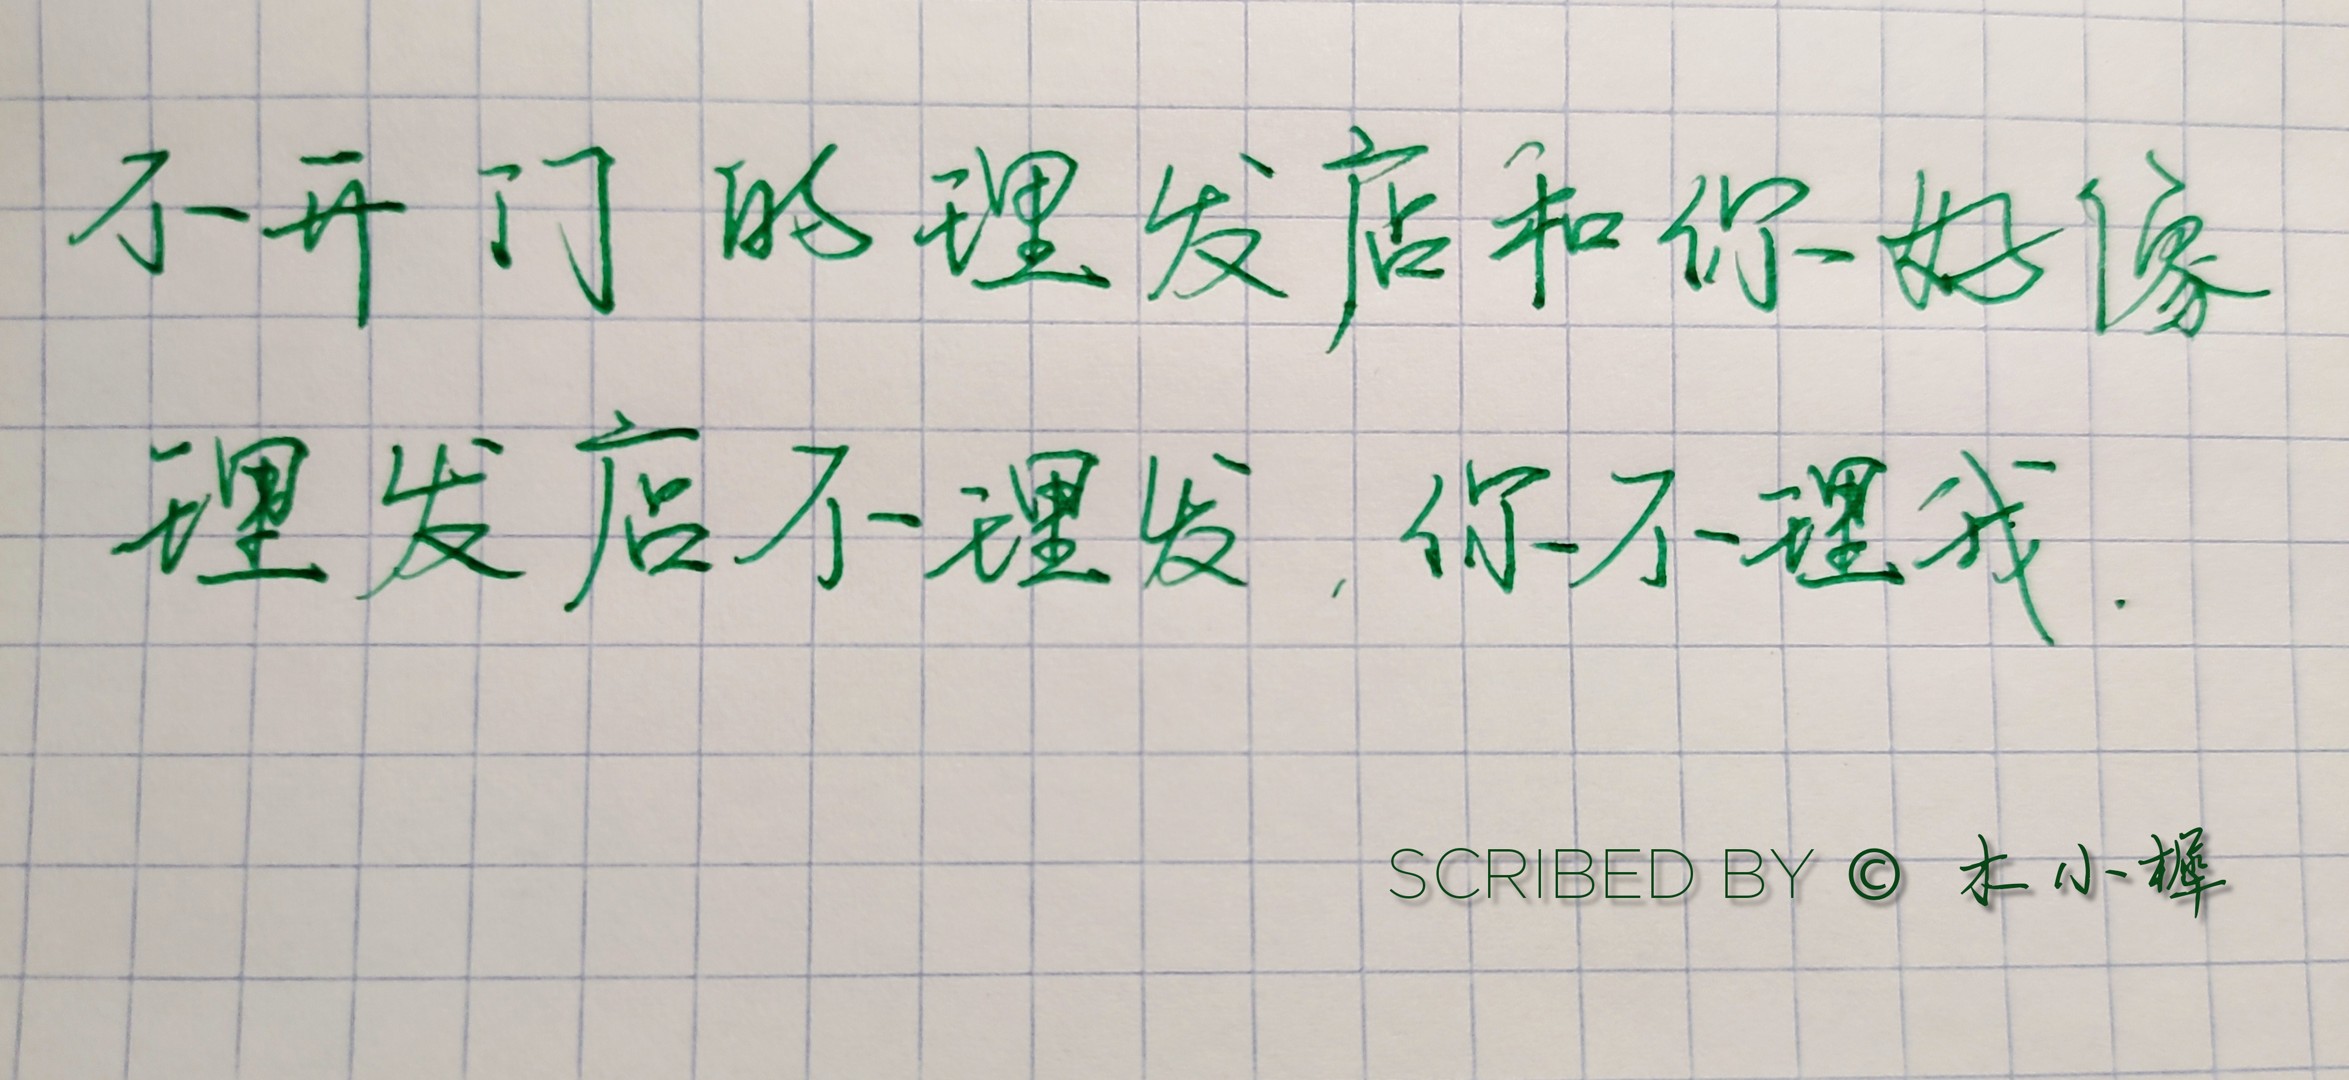 不开门的理发店和你好像
理发店不理发,你不理我.
SCRIBED BY © 木小樺